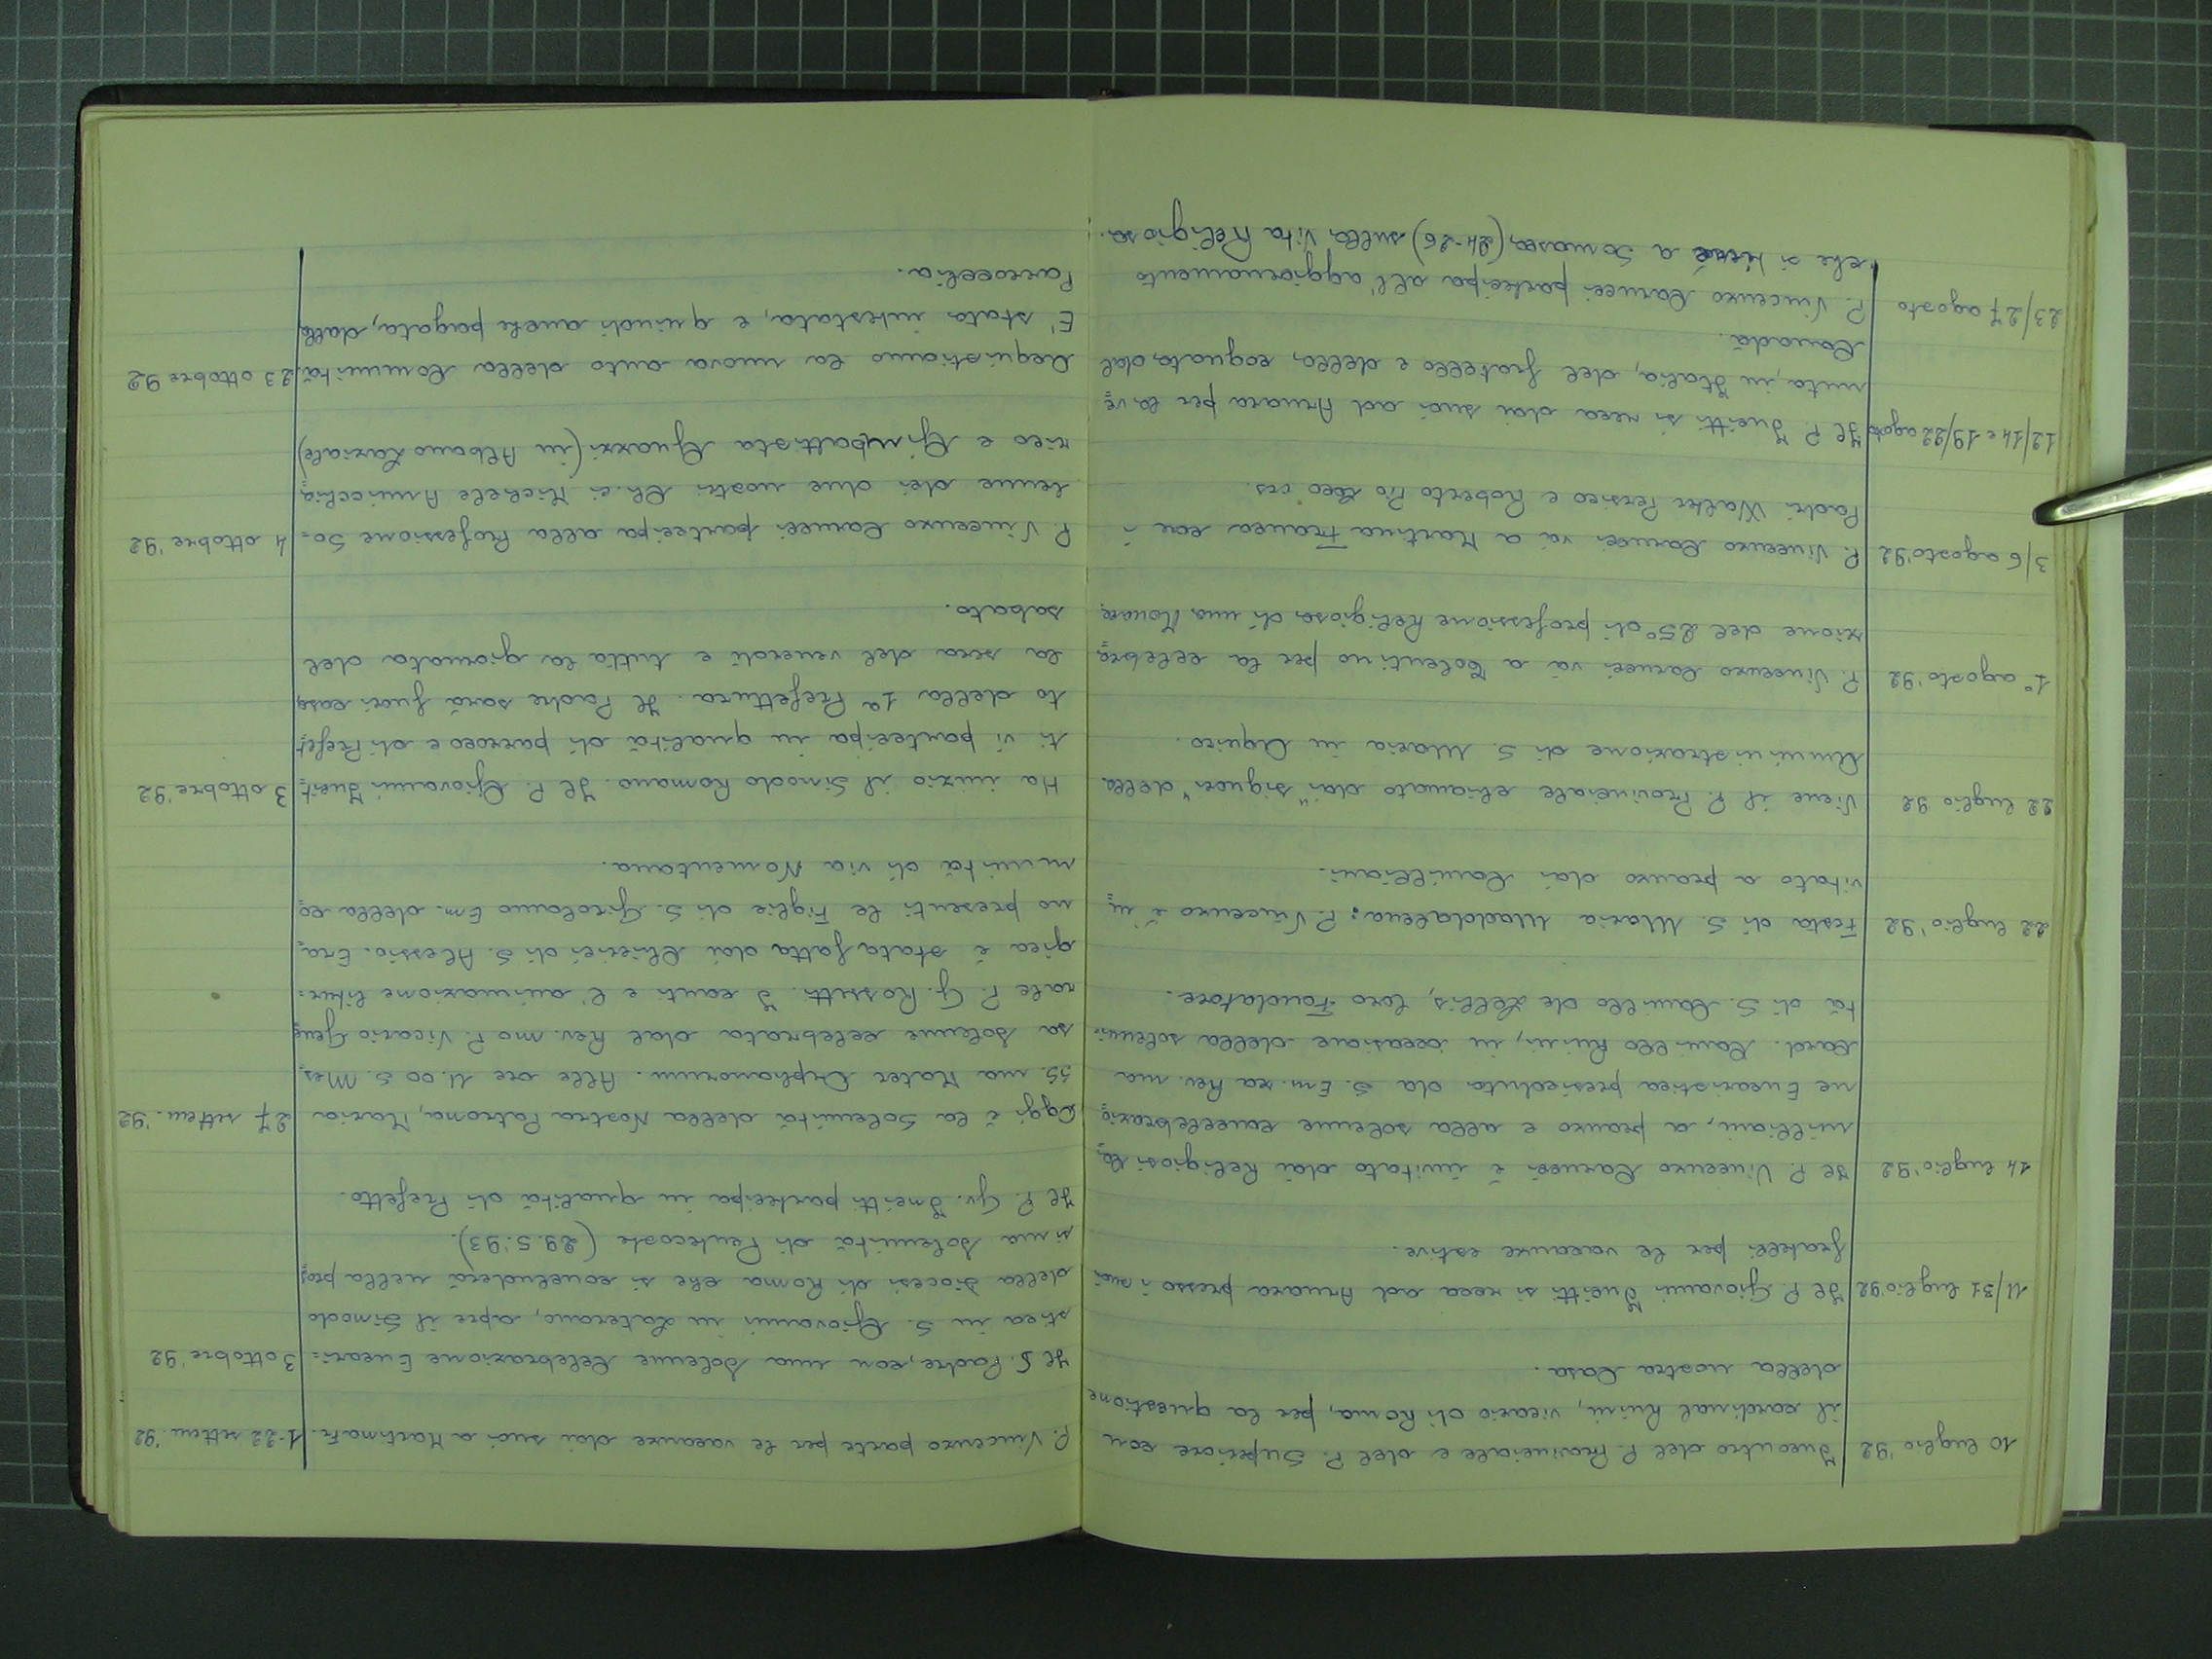 10 luglio '92 Incontro del P. Provinciale e del P. Superiore con
il cardinal Ruini, vicario di Roma, per la questione
della nostra Casa.
11/31 luglio '92 Il P. Giovanni Incitti si reca ad Amara presso i suoi
fratelli per le vacanze estive.
14 luglio '92 Il P. Vincenzo Carucci è invitato dai Religiosi Ca
milliani, a pranzo e alla solenne concelebrazio
ne Eucaristica presieduta da S. Em.za Rev.ma
Card. Camillo Ruini, in occasione della solenni
tà di S. Camillo de Lellis, loro Fondatore.
22 luglio '92 Festa di S. Maria Maddalena: P. Vincenzo è in
vitato a pranzo dai Camilliani.
22 luglio 92 Viene il P. Provinciale chiamato dai "signori" della
Amministrazione di S. Maria in Aquiro.
1° agosto '92 P. Vincenzo Carucci và a Tolentino per la celebra
zione del 25° di professione Religiosa di una Monaca
3/6 agosto '92 P. Vincenzo Carucci và a Martina Franca con i
Padri Walter Persico e Roberto Pio crs.
12/14 e 19/22 agosto Il P. Incitti si reca dai suoi ad Amara per la ve
nuta, in Italia, del fratello e della cognata, dal
Canadà.
23/27 agosto P. Vincenzo Carucci partecipa all'aggiornamento
che si tiene a Somasca, (24-26) sulla Vita Religiosa.
P. Vincenzo parte per le vacanze dai suoi a Martina Fr. 1-22 settem. '92
Il S. Padre, con una Solenne Celebrazione Eucari= 3 ottobre '92
stica in S. Giovanni in Laterano, apre il Sinodo
della diocesi di Roma che si concluderà nella pros
sima Solennità di Pentecoste (29.5.'93).
Il P. Gv. Incitti partecipa in qualità di Prefetto.
Oggi è la Solennità della Nostra Patrona, Maria 27 settem. '92
SS.ma Mater Orphanorum. Alle ore 11.00 S. Mes
sa Solenne celebrata dal Rev.mo P. Vicario Gene
rale P. G. Rossetti. I canti e l'animazione litur=
gica è stata fatta dai Chierici di S. Alessio. Era
no presenti le Figlie di S. Girolamo Em. della co
munità di via Nomentana.
Ha inizio il Sinodo Romano. Il P. Giovanni Incit 3 ottobre '92
ti vi partecipa in qualità di parroco e di Prefet
to della 1a Prefettura. Il Padre sarà fuori casa
la sera del venerdì e tutta la giornata del
sabato.
P. Vincenzo Carucci partecipa alla Professione So= 4 ottobre '92
lenne dei due nostri Ch.ci Michele Marrocchia
rico e Gimbattista Guarzi (in Albano Laziale)
Acquistiamo la nuova auto della Comunità 23 ottobre 92
E' stata intestata, e quindi anche pagata, dalla
Parrocchia.